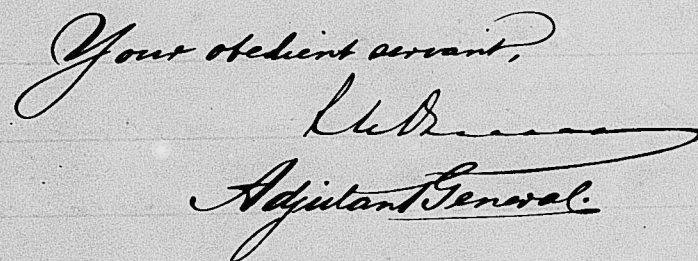 Your obedient servant,
Adjutant General.